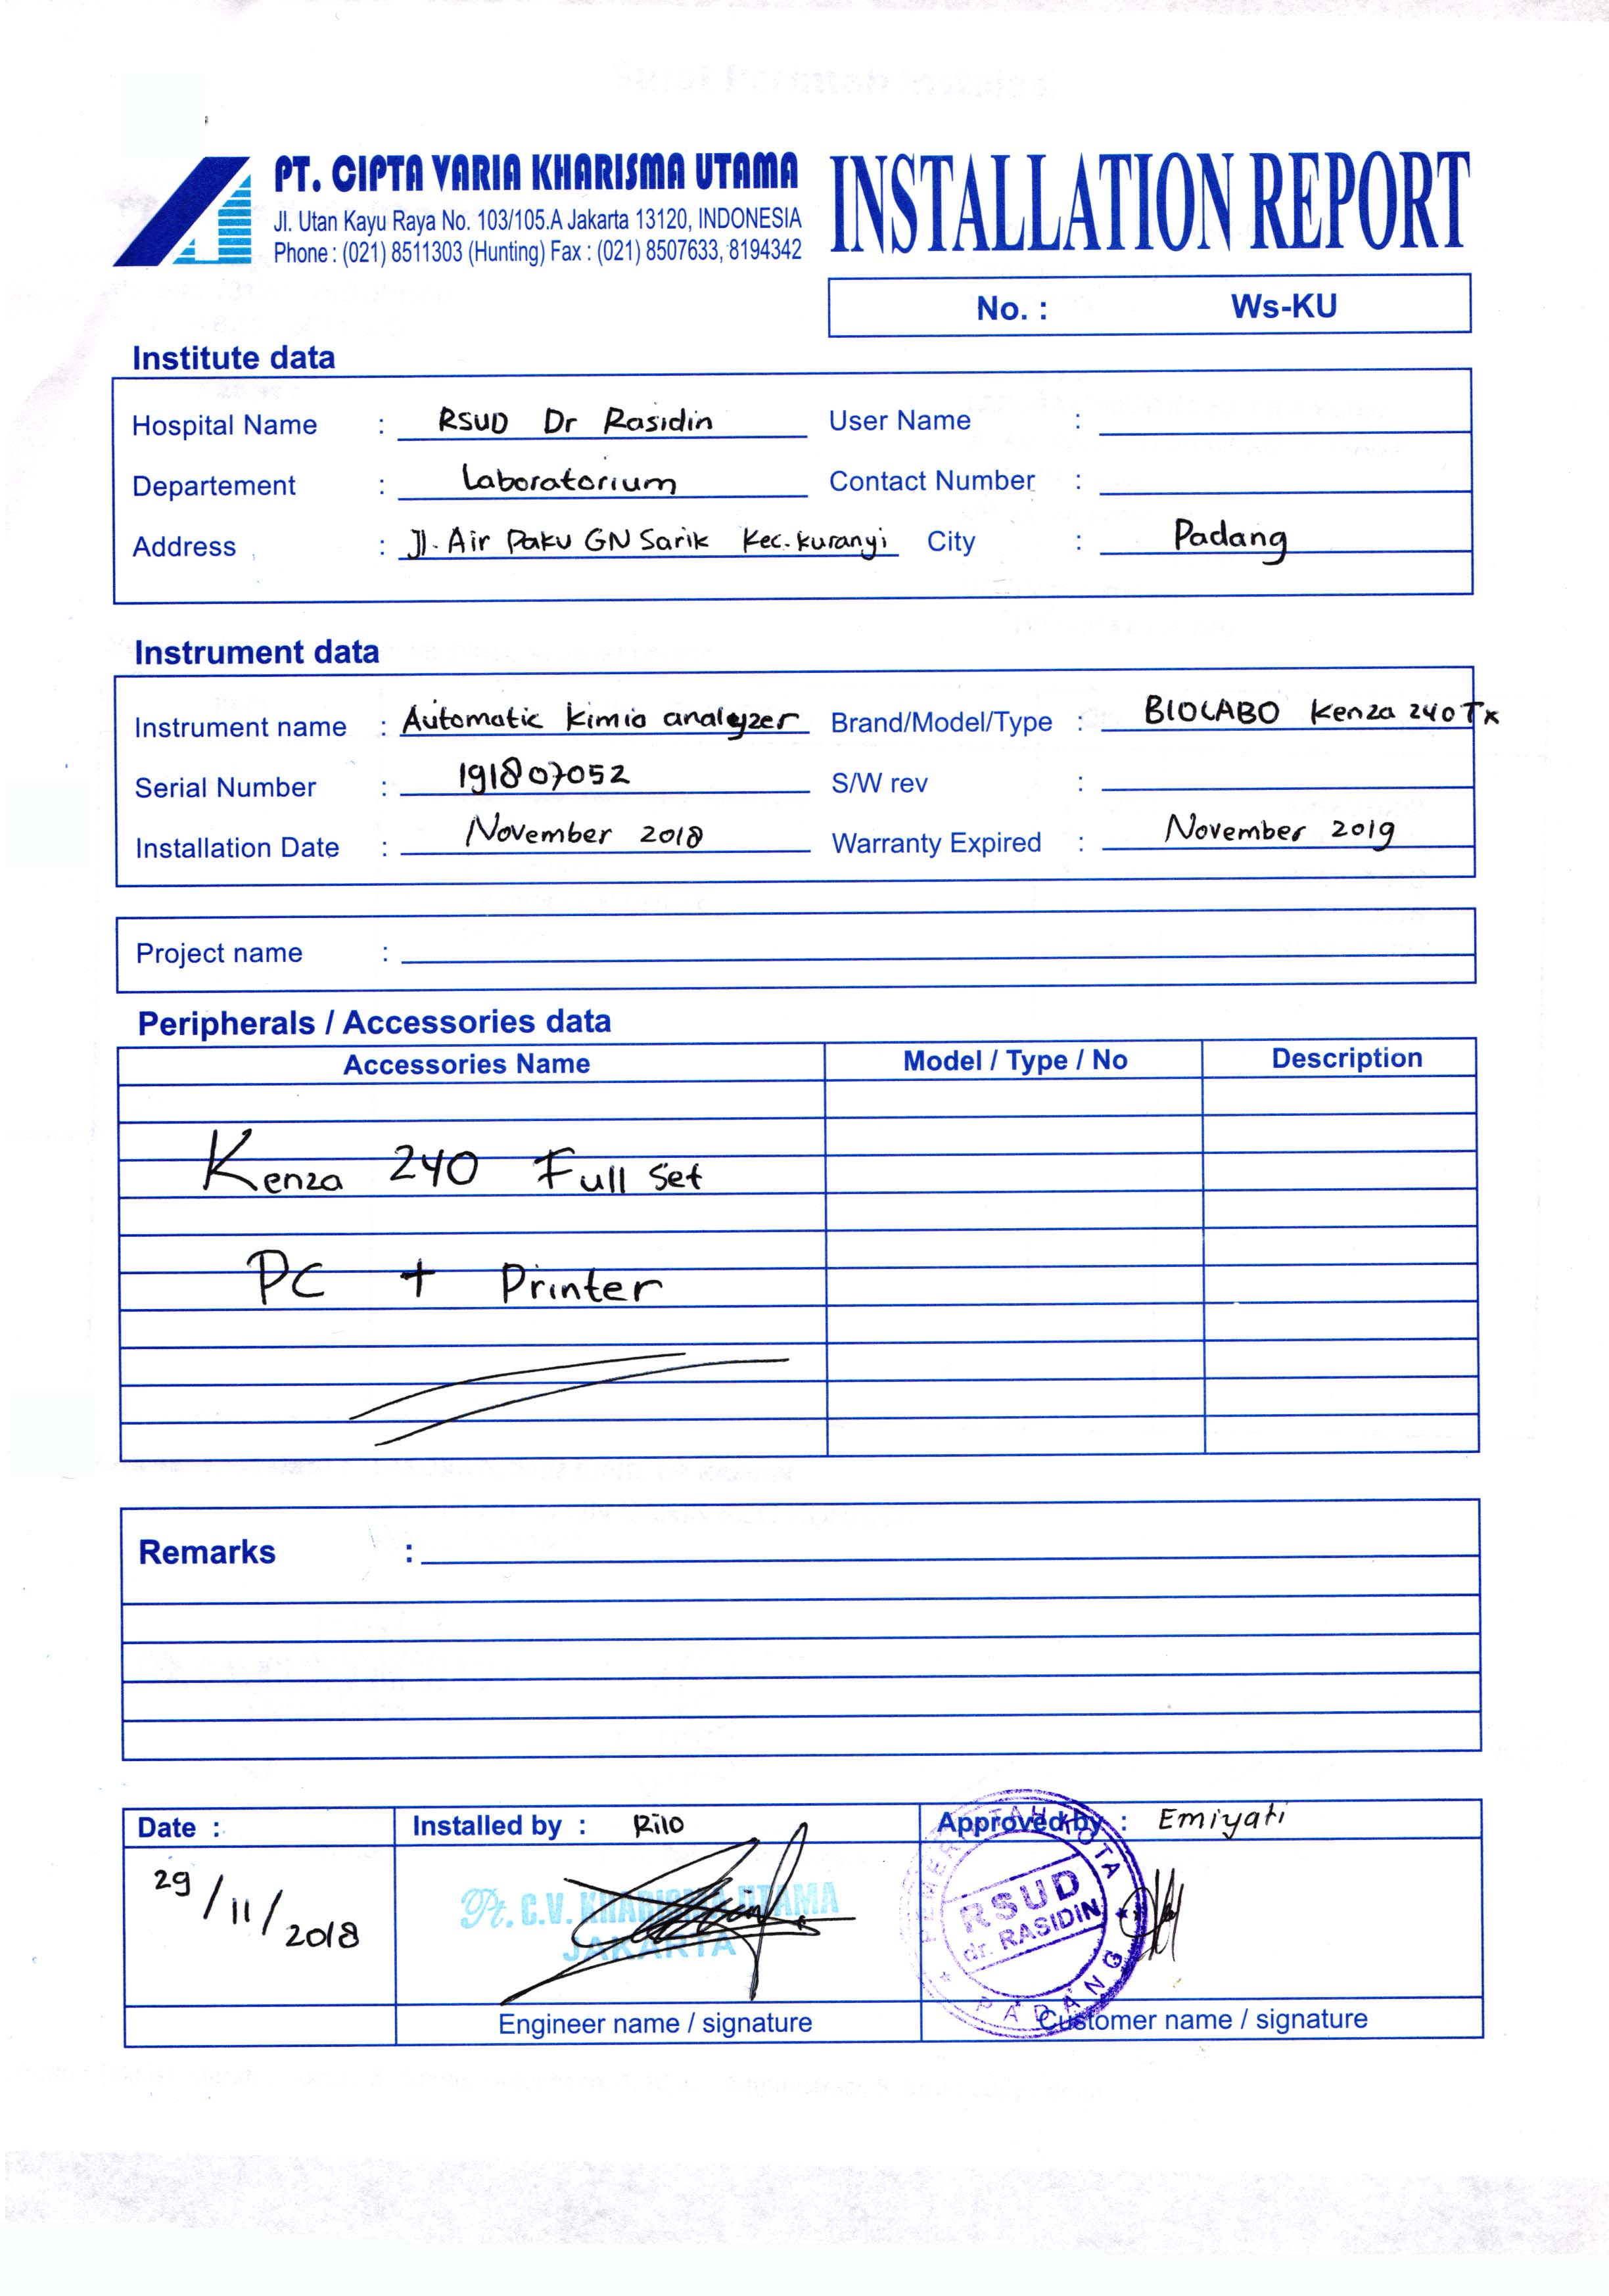 PT. CIPTA VARIA KHARISMA UTAMA
Jl. Utan Kayu Raya No. 103/105.A Jakarta 13120, INDONESIA
Phone : (021) 8511303 (Hunting) Fax : (021) 8507633, 8194342
INSTALLATION REPORT
No. : Ws-KU
Institute data
Hospital Name : RSUD Dr Rasidin User Name :
Departement : Laboratorium Contact Number :
Address : Jl. Air Paku GN Sarik Kec. Kuranyi City : Padang
Instrument data
Instrument name : Automatic kimia analyzer Brand/Model/Type : BIOLABO Kenza 240 Tx
Serial Number : 191807052 S/W rev :
Installation Date : November 2018 Warranty Expired : November 2019
Project name :
Peripherals / Accessories data
Accessories Name Model / Type / No Description
Kenza 240 Full Set
PC + Printer
Remarks :
Date : Installed by : Rilo Approved by : Emiyati
29/11/2018
Pt. C.V. KHARISMA UTAMA
JAKARTA
PEMERINTAH KOTA
RSUD
dr. RASIDIN
PADANG
Engineer name / signature Customer name / signature